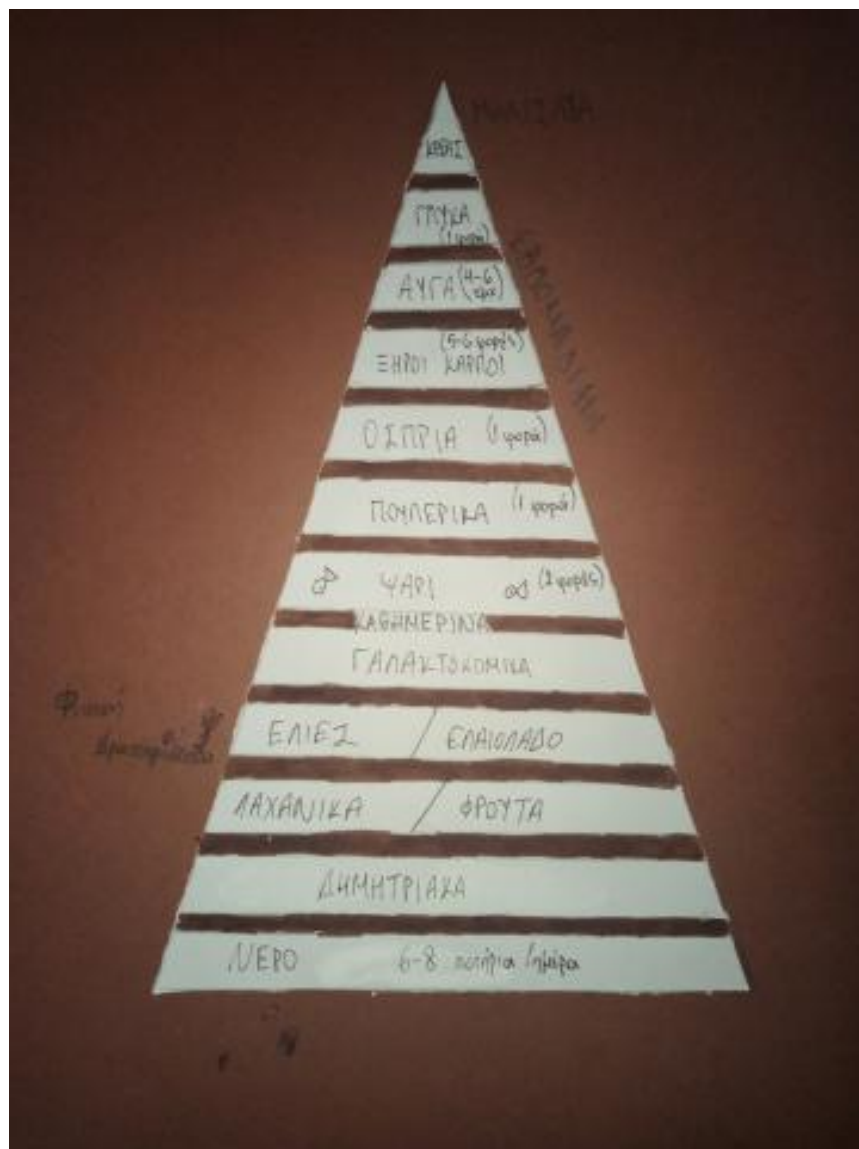 ΜΗΝΙΑΙΑ
ΚΡΕΑΣ
ΓΛΥΚΑ
(1 φορά)
ΕΒΔΟΜΑΔΙΑΙΑ
ΑΥΓΑ (4-6
(5-6 φορές)
ΞΗΡΟΙ ΚΑΡΠΟΙ
ΟΣΠΡΙΑ (1 φορά)
ΠΟΥΛΕΡΙΚΑ (1 φορά)
ΨΑΡΙ (2 φορές)
ΚΑΘΗΜΕΡΙΝΑ
ΓΑΛΑΚΤΟΚΟΜΙΚΑ
Φυσική
ΕΛΙΕΣ / ΕΛΑΙΟΛΑΔΟ
δραστηριότητα
ΛΑΧΑΝΙΚΑ / ΦΡΟΥΤΑ
ΔΗΜΗΤΡΙΑΚΑ
ΝΕΡΟ 6-8 ποτήρια /ημέρα